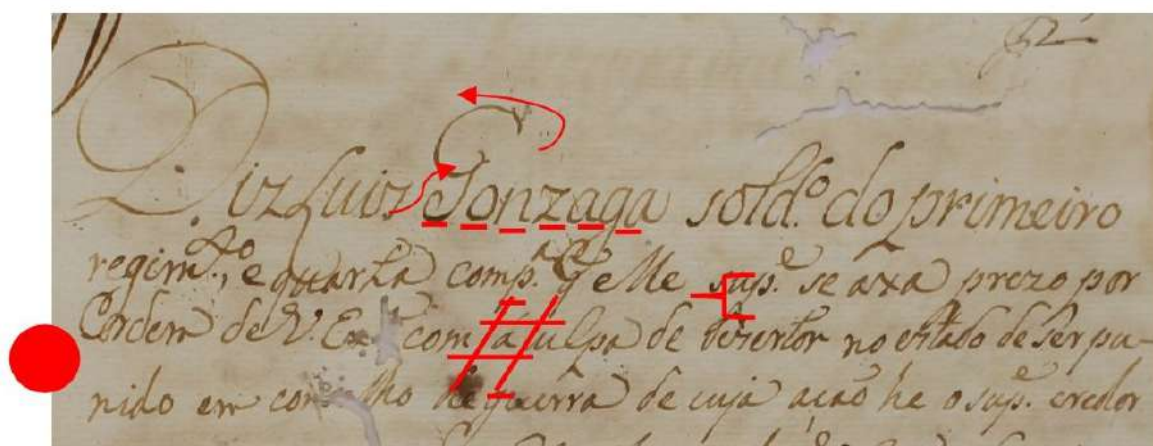 Diz Luis Gonzaga sold.º do primeiro
regim.to, e quarta comp.ª q̃ elle sup.e se axa prezo por
ordem de V. Ex.ª com a culpa de dezertor no estado de ser pu-
nido em conselho de guerra de cuja acaõ he o sup.e credor